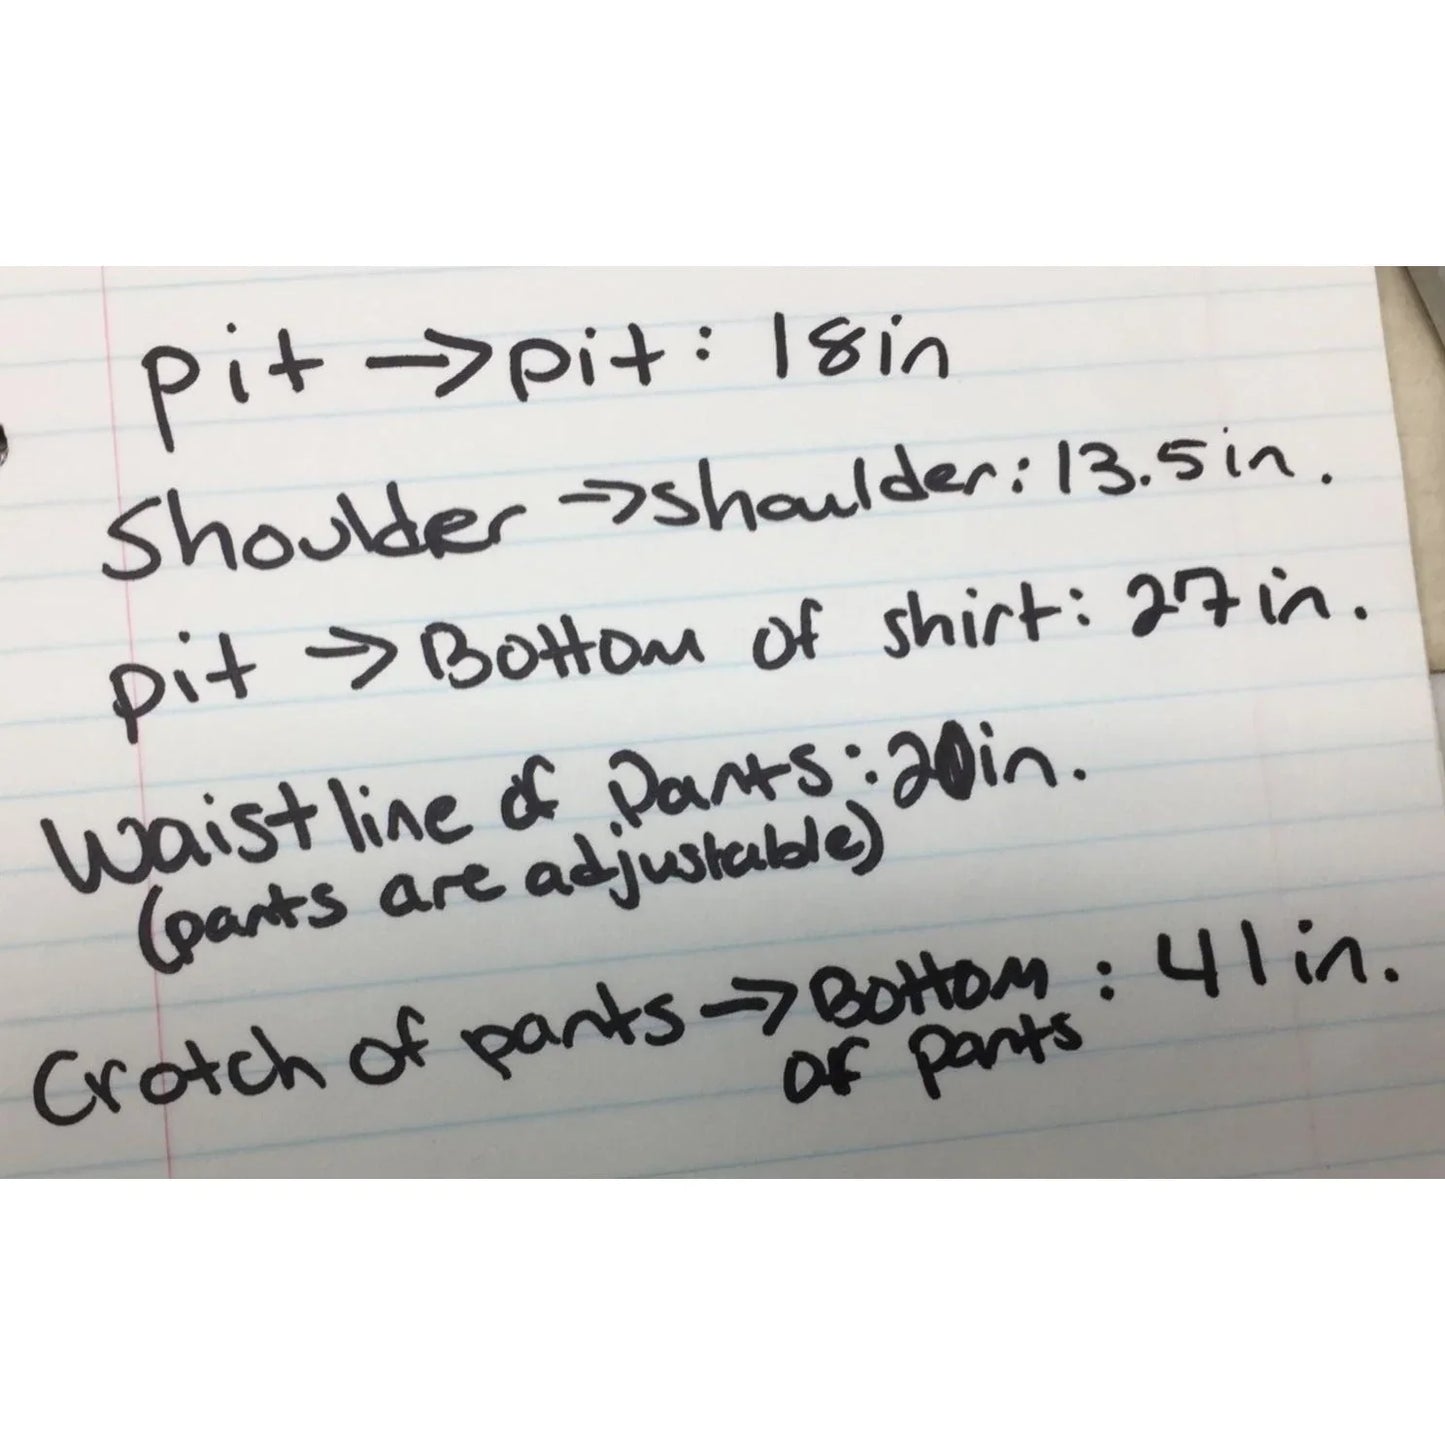 pit →pit: 18in
Shoulder →shoulder: 13.5in.
pit →Bottom of shirt: 27in.
Waistline of Pants: 20in.
(pants are adjustable)
Crotch of pants →Bottom : 41in.
of pants